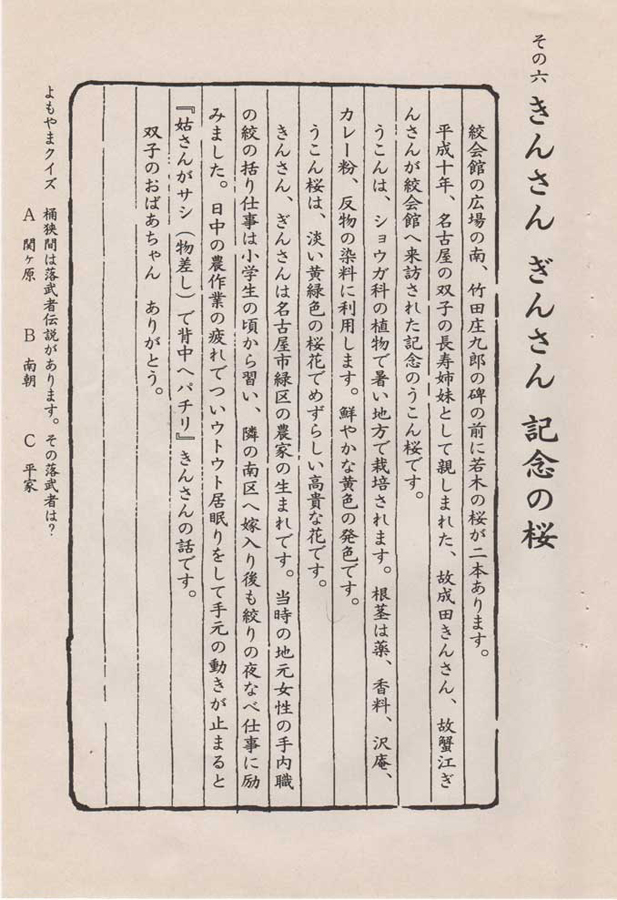 その六 きんさん ぎんさん 記念の桜
絞会館の広場の南、竹田庄九郎の碑の前に若木の桜が二本あります。
平成十年、名古屋の双子の長寿姉妹として親しまれた、故成田きんさん、故蟹江ぎ
んさんが絞会館へ来訪された記念のうこん桜です。
うこんは、ショウガ科の植物で暑い地方で栽培されます。根茎は薬、香料、沢庵、
カレー粉、反物の染料に利用します。鮮やかな黄色の発色です。
うこん桜は、淡い黄緑色の桜花でめずらしい高貴な花です。
きんさん、ぎんさんは名古屋市緑区の農家の生まれです。当時の地元女性の手内職
の絞の括り仕事は小学生の頃から習い、隣の南区へ嫁入り後も絞りの夜なべ仕事に励
みました。日中の農作業の疲れでついウトウト居眠りをして手元の動きが止まると
『姑さんがサシ（物差し）で背中へパチリ』きんさんの話です。
双子のおばあちゃん ありがとう。
よもやまクイズ 桶狭間は落武者伝説があります。その落武者は？
A 関ヶ原 B 南朝 C 平家